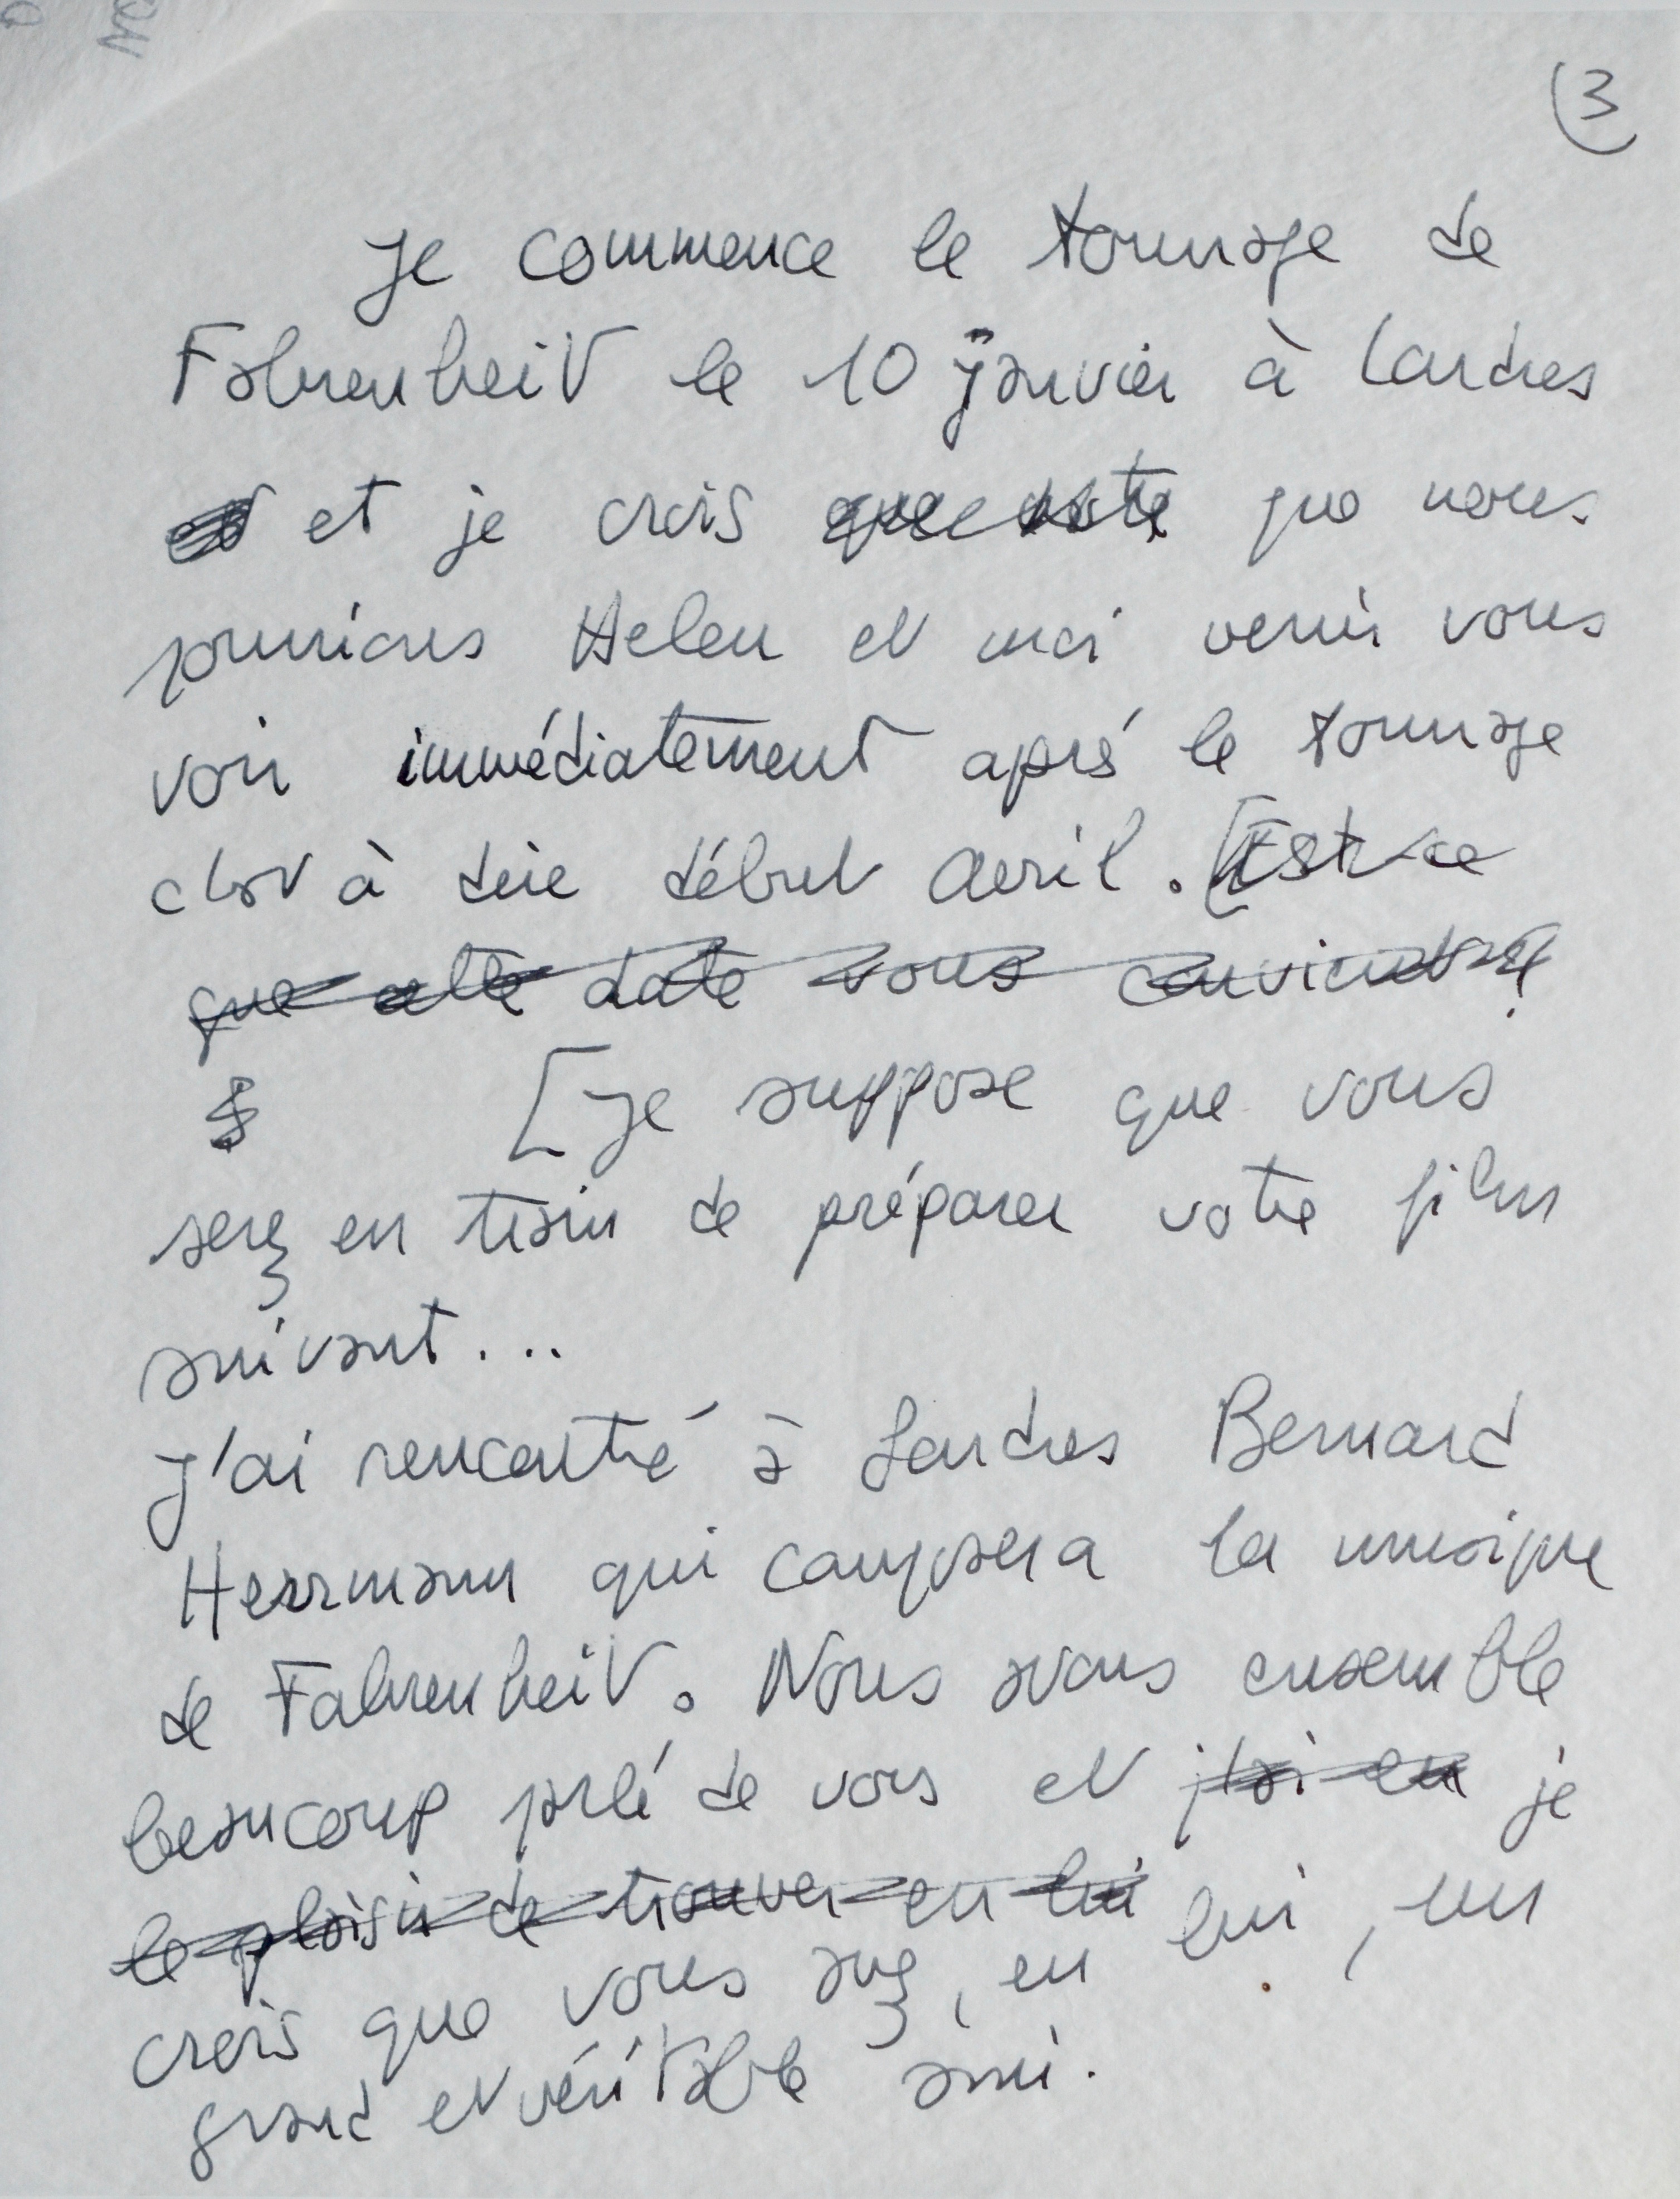 3
Je commence le tournage de
Fahrenheit le 10 janvier à Londres
et je crois que votre que nous
pourrions Helen et moi venir vous
voir immédiatement après le tournage
c'est à dire début Avril. [Est-ce
que cette date vous conviendra?
[Je suppose que vous
serez en train de préparer votre film
suivant...
J'ai rencontré à Londres Bernard
Herrmann qui composera la musique
de Fahrenheit. Nous avons ensemble
beaucoup parlé de vous et j'ai eu je
le plaisir de trouver en lui lui, un
crois que vous avez, en
grand et véritable ami.